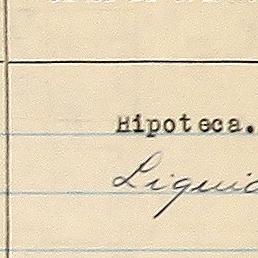 Hipoteca.
Liquid